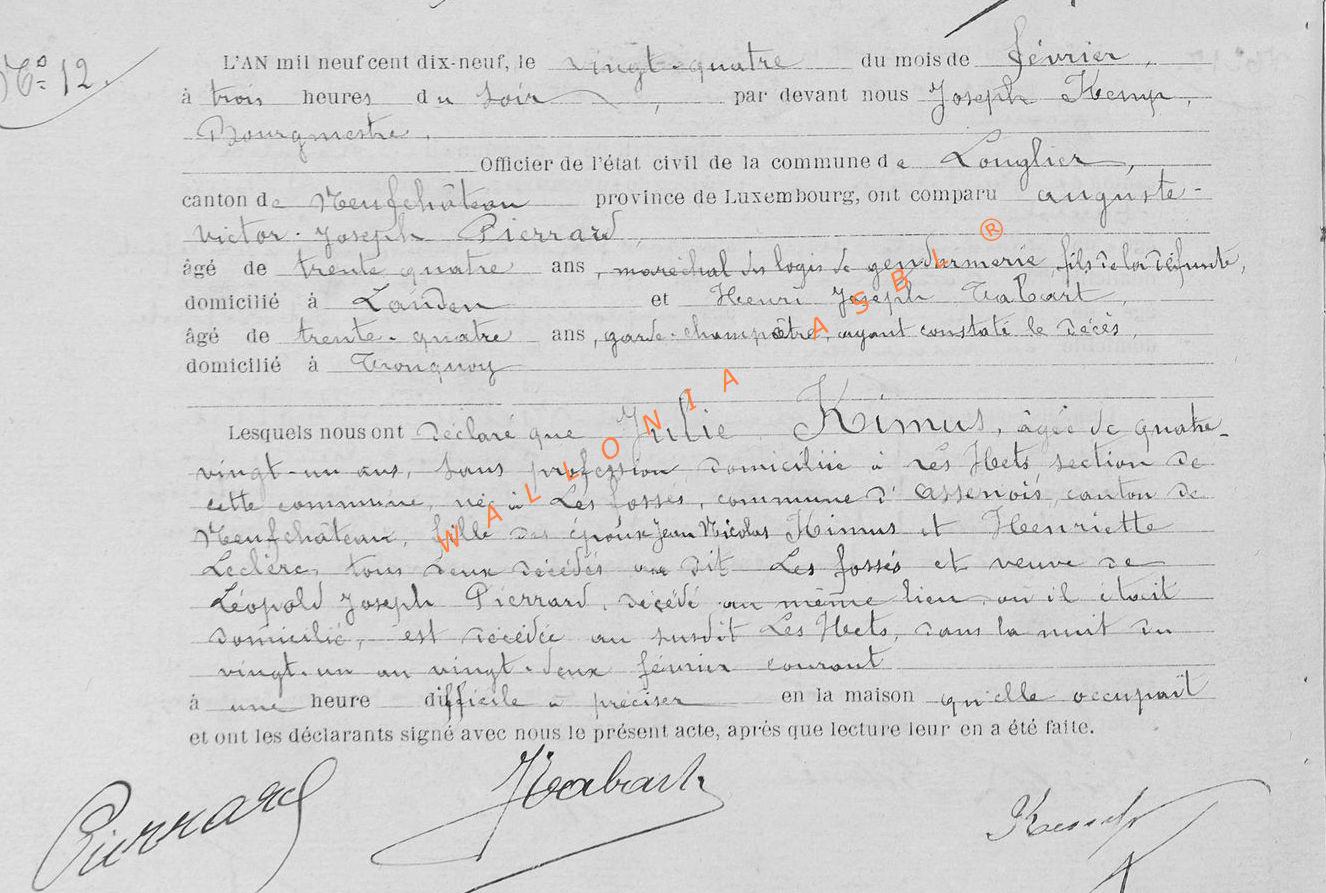 N° 12.
L'AN mil neuf cent dix-neuf, le vingt-quatre du mois de février,
à trois heures du soir, par devant nous Joseph Kemp,
Bourgmestre.
Officier de l'état civil de la commune de Longlier,
canton de Neufchâteau province de Luxembourg, ont comparu auguste-
victor-Joseph Pierrard,
âgé de trente quatre ans, maréchal des logis de gendarmerie, fils de la défunte,
domicilié à Landen et Henri Joseph Tabart,
âgé de trente-quatre ans, garde-champêtre, ayant constaté le décès,
domicilié à Tronquoy
Lesquels nous ont déclaré que Julie Kimus, âgée de quatre-
vingt-un ans, sans profession domiciliée à Les Hets section de
cette commune, née à Les fossés, commune d'assenois, canton de
Neufchâteau, fille des époux Jean Nicolas Kimus et Henriette
Leclère, tous deux décédés au dit Les fossés et veuve de
Léopold Joseph Pierrard, décédé au même lieu, où il était
domicilié, est décédée au susdit Les Hets, dans la nuit du
vingt-un au vingt-deux février courant
à une heure difficile à préciser en la maison qu'elle occupait
et ont les déclarants signé avec nous le présent acte, après que lecture leur en a été faite.
Pierrard HTabart Kemp
WALLONIA ASBL ®